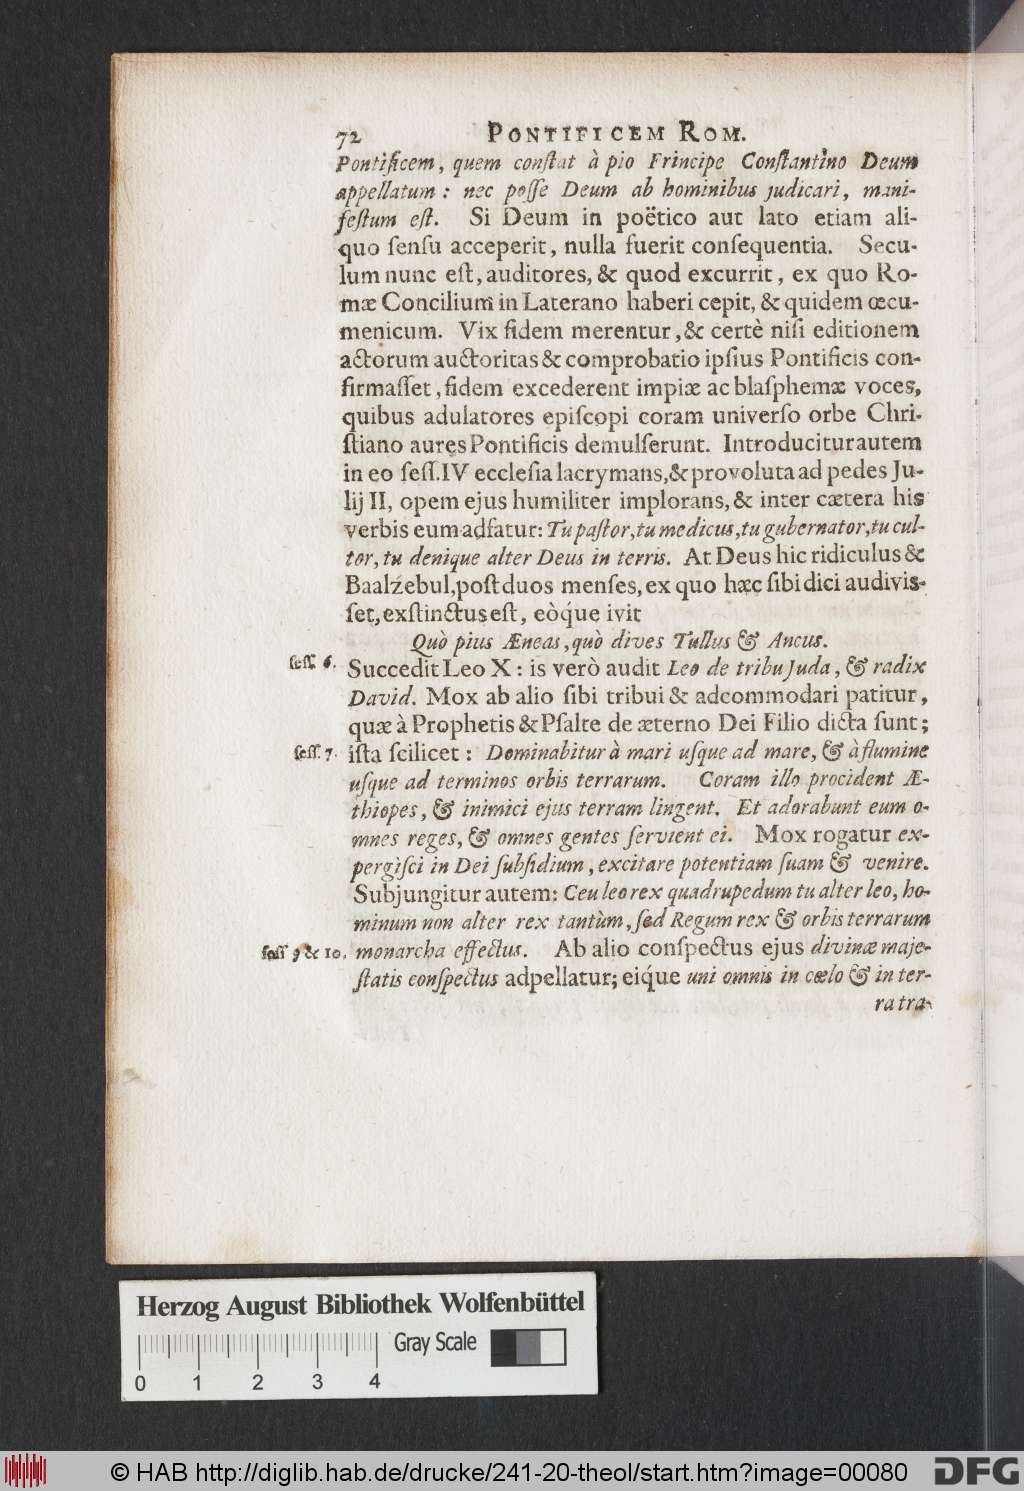 72 PONTIFICEM ROM.
Pontificem, quem conſtat à pio Principe Conſtantino Deum
appellatum : nec poſſe Deum ab hominibus judicari, mani-
feſtum eſt. Si Deum in poëtico aut lato etiam ali-
quo ſenſu acceperit, nulla fuerit conſequentia. Secu-
lum nunc eſt, auditores, & quod excurrit, ex quo Ro-
mæ Concilium in Laterano haberi cepit, & quidem œcu-
menicum. Vix fidem merentur, & certè niſi editionem
actorum auctoritas & comprobatio ipſius Pontificis con-
firmaſſet, fidem excederent impiæ ac blaſphemæ voces,
quibus adulatores epiſcopi coram univerſo orbe Chri-
ſtiano aures Pontificis demulſerunt. Introducitur autem
in eo ſeſſ. IV eccleſia lacrymans, & provoluta ad pedes Ju-
lij II, opem ejus humiliter implorans, & inter cætera his
verbis eum adfatur: Tu paſtor, tu medicus, tu gubernator, tu cul-
tor, tu denique alter Deus in terris. At Deus hic ridiculus &
Baalzebul, poſt duos menſes, ex quo hæc ſibi dici audivis-
ſet, exſtinctus eſt, eòq́ue ivit
Quò pius Æneas, quò dives Tullus & Ancus.
ſeſſ. 6. Succedit Leo X : is verò audit Leo de tribu Juda, & radix
David. Mox ab alio ſibi tribui & adcommodari patitur,
quæ à Prophetis & Pſalte de æterno Dei Filio dicta ſunt;
ſeſſ. 7. iſta ſcilicet : Dominabitur à mari uſque ad mare, & à flumine
uſque ad terminos orbis terrarum. Coram illo procident Æ-
thiopes, & inimici ejus terram lingent. Et adorabunt eum o-
mnes reges, & omnes gentes ſervient ei. Mox rogatur ex-
pergiſci in Dei ſubſidium, excitare potentiam ſuam & venire.
Subjungitur autem: Ceu leo rex quadrupedum tu alter leo, ho-
minum non alter rex tantùm, ſed Regum rex & orbis terrarum
ſeſſ 9 & 10. monarcha effectus. Ab alio conſpectus ejus divinæ maje-
ſtatis conſpectus adpellatur; eiq́ue uni omnis in cœlo & in ter-
ra tra-
Herzog August Bibliothek Wolfenbüttel
Gray Scale
0 1 2 3 4
© HAB http://diglib.hab.de/drucke/241-20-theol/start.htm?image=00080 DFG